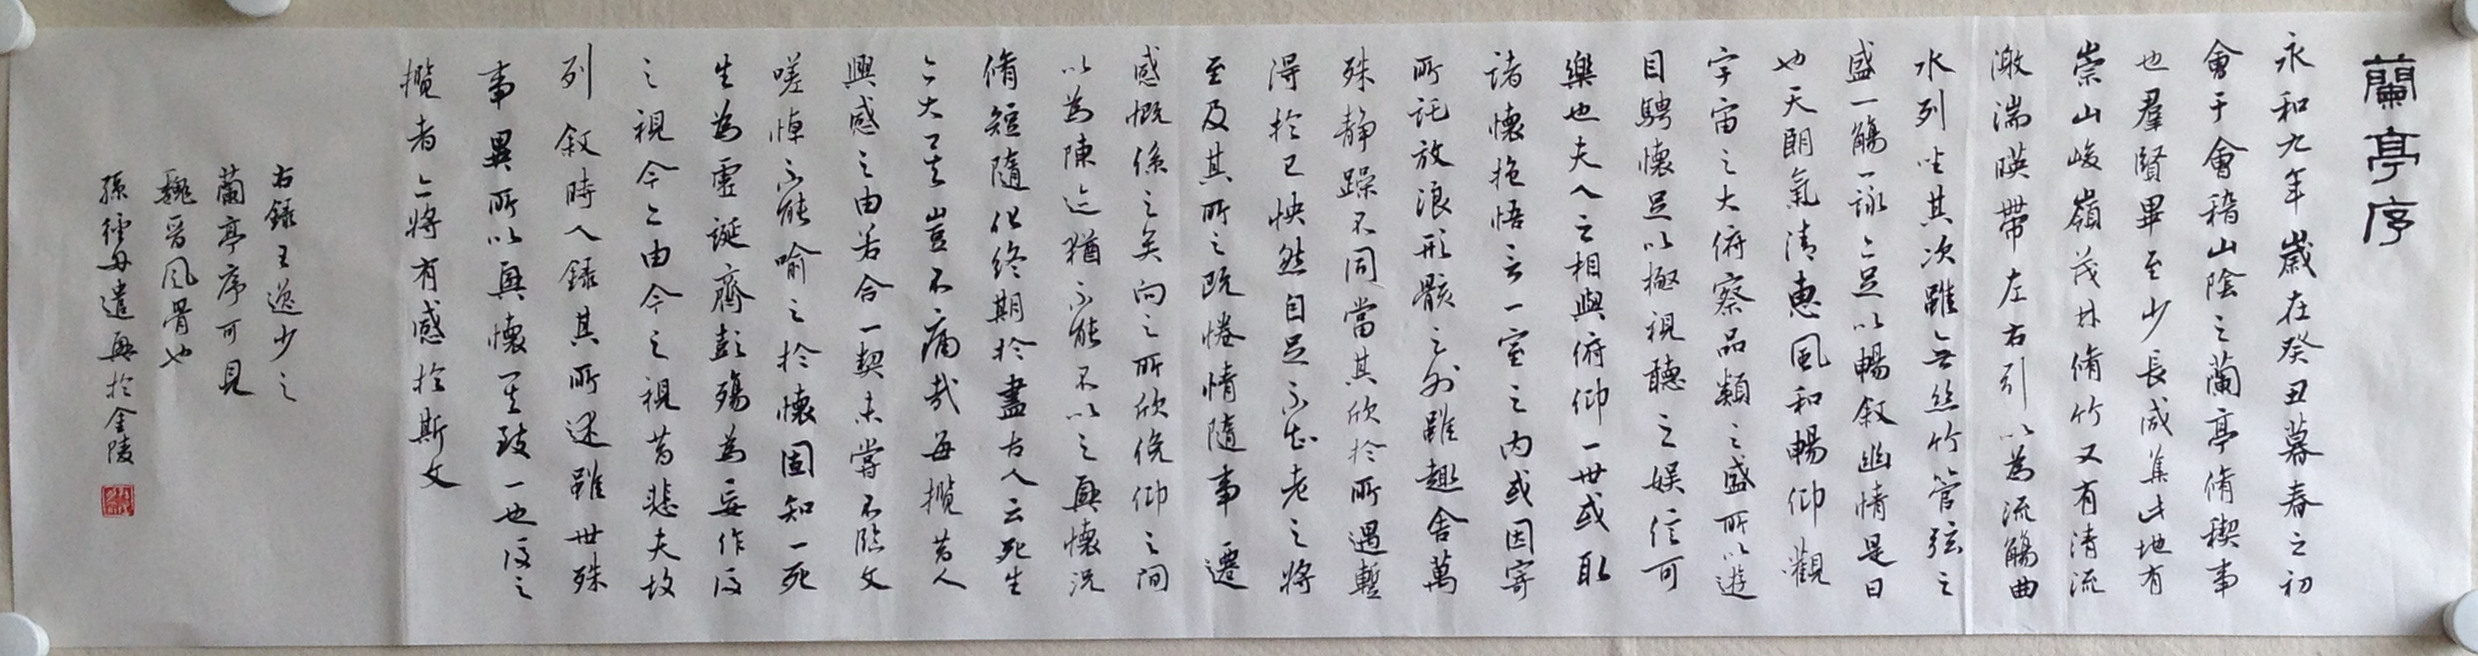 蘭亭序
永和九年歲在癸丑暮春之初
會于會稽山陰之蘭亭脩稧事
也羣賢畢至少長咸集此地有
崇山峻嶺茂林脩竹又有清流
激湍暎帶左右引以為流觴曲
水列坐其次雖無絲竹管弦之
盛一觴一詠亦足以暢敘幽情是日
也天朗氣清惠風和暢仰觀
宇宙之大俯察品類之盛所以遊
目騁懷足以極視聽之娛信可
樂也夫人之相與俯仰一世或取
諸懷抱悟言一室之內或因寄
所託放浪形骸之外雖趣舍萬
殊靜躁不同當其欣於所遇蹔
得於己怏然自足不知老之將
至及其所之既惓情隨事遷
感慨係之矣向之所欣俛仰之間
以為陳迹猶不能不以之興懷況
脩短隨化終期於盡古人云死生
亦大矣豈不痛哉每攬昔人
興感之由若合一契未嘗不臨文
嗟悼不能喻之於懷固知一死
生為虛誕齊彭殤為妄作後
之視今亦由今之視昔悲夫故
列敘時人錄其所述雖世殊
事異所以興懷其致一也後之
攬者亦將有感於斯文
右錄王逸少之
蘭亭序可見
魏晉風骨也
孫 遣興於金陵